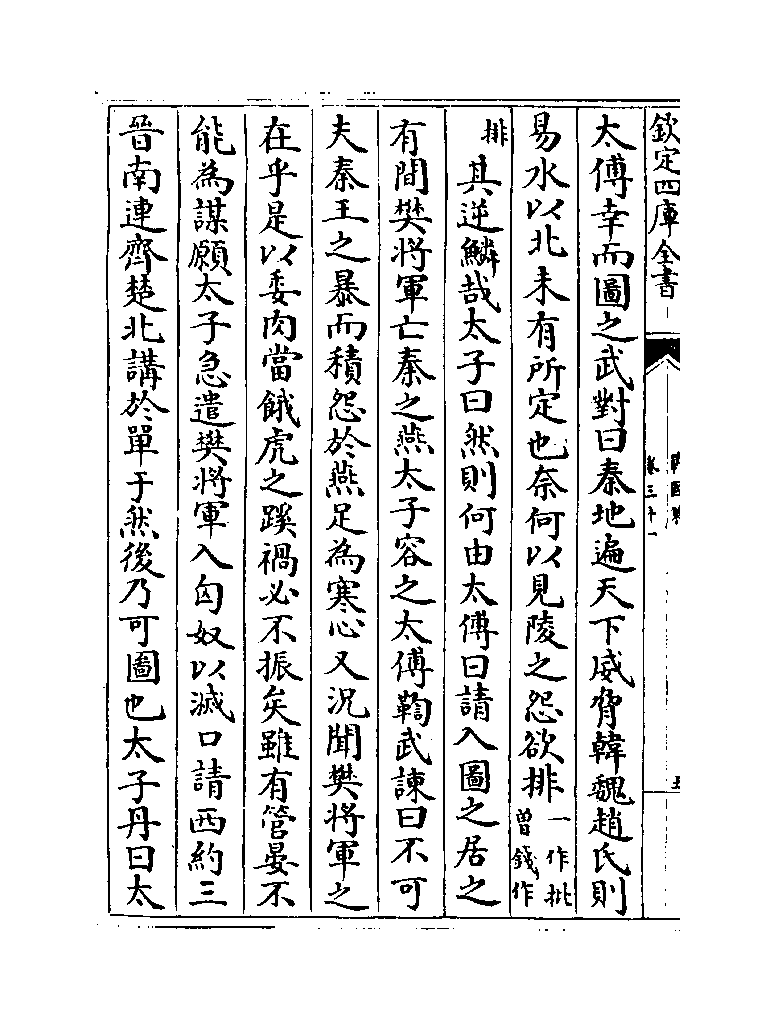 欽定四庫全書
卷三十一
太傅幸而圖之武對曰秦地遍天下威脅韓魏趙氏則
易水以北未有所定也奈何以見陵之怨欲排一作批曾錢作
排其逆鱗哉太子曰然則何由太傅曰請入圖之居之
有間樊將軍亡秦之燕太子容之太傅鞫武諫曰不可
夫秦王之暴而積怨於燕足為寒心又況聞樊將軍之
在乎是以委肉當餓虎之蹊禍必不振矣雖有管晏不
能為謀願太子急遣樊將軍入匈奴以滅口請西約三
晉南連齊楚北講於單于然後乃可圖也太子丹曰太